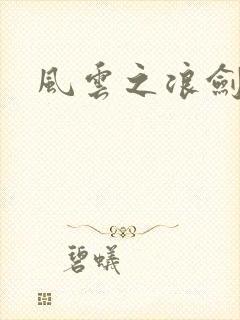 風雲之浪劍
碧蟻